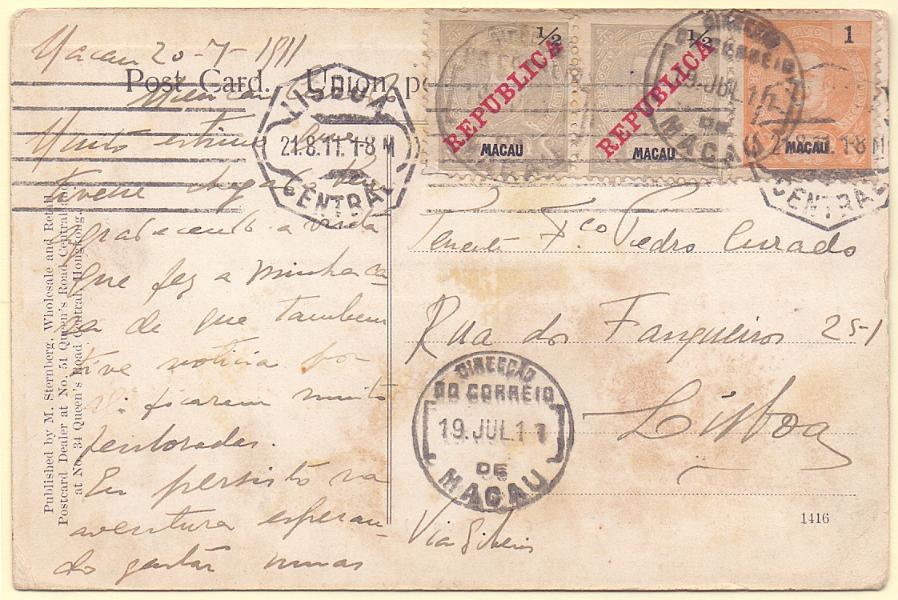 Macau 20-7-1911
Post Card. Union
Muito estimo que
tivesse chegado bem
agradecendo a visita
que fez a minha ca-
sa de que tambem
tive noticia por
ficarem muito
penhoradas.
Eu persisto na
aventura esperan-
do gastar
½
REPUBLICA
MACAU
½
REPUBLICA
MACAU
1
MACAU
LISBOA
21.8.11.1-8 M
CENTRAL
DIRECÇÃO
DO CORREIO
19 JUL 11
DE
MACAU
21.8.11.1-8 M
CENTRAL
Tenente Fco Pedro Curado
Rua dos Fanqueiros 25-1
Lisboa
DIRECÇÃO
DO CORREIO
19. JUL 11
DE
MACAU
Via Siberia
1416
Published by M. Sternberg, Wholesale and Retail
Postcard Dealer at No. 51 Queen's Road Central
at No. 34 Queen's Road Central, Hongkong.